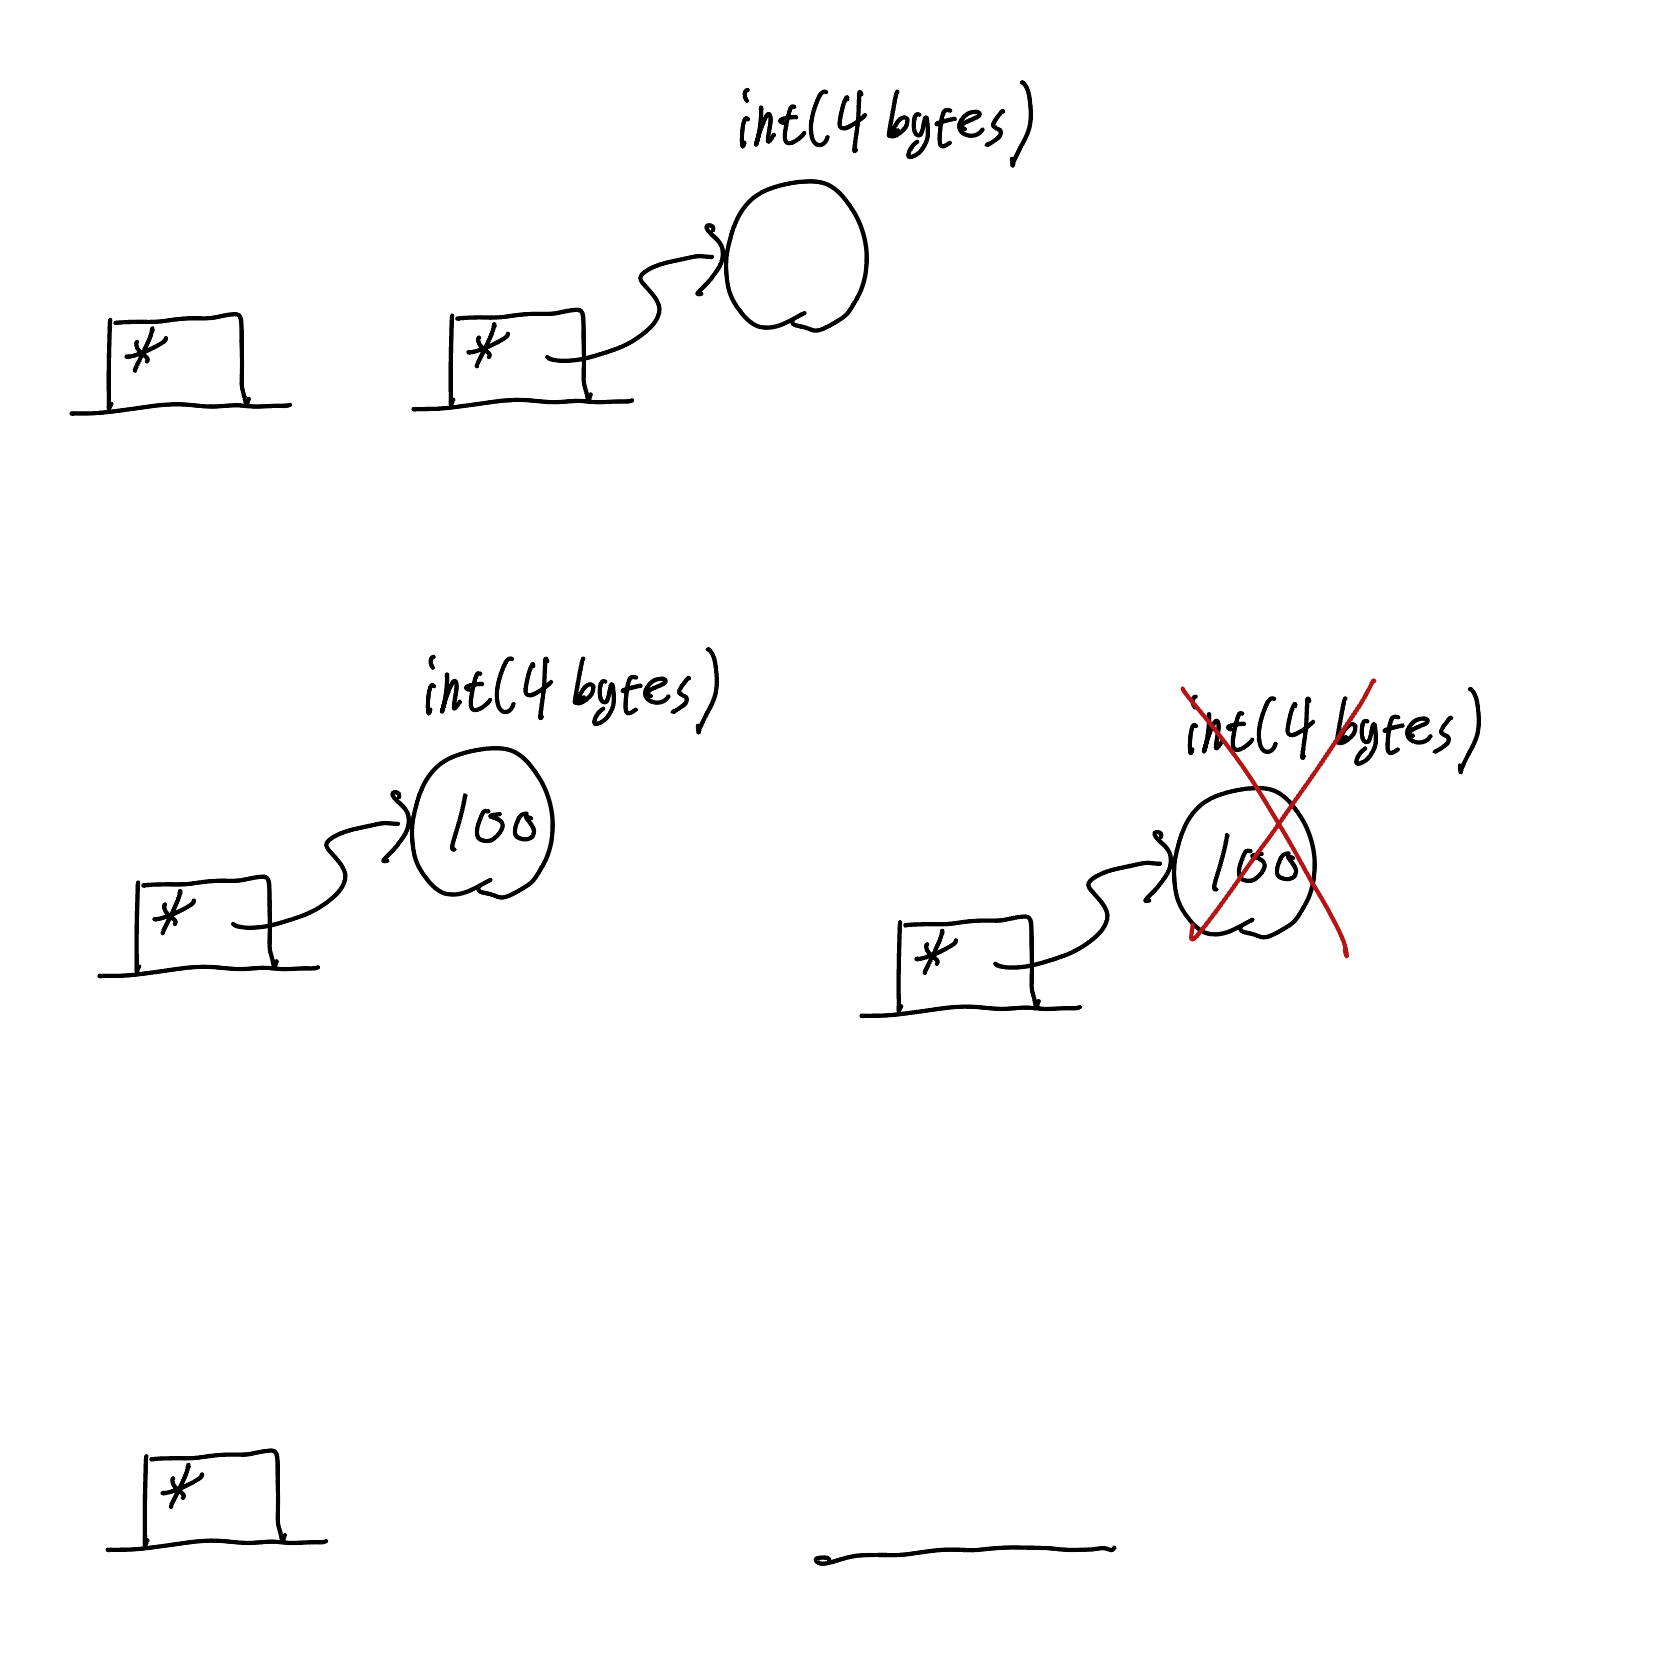 int(4 bytes)
*
*
int(4 bytes)
100
*
int(4 bytes)
100
*
*